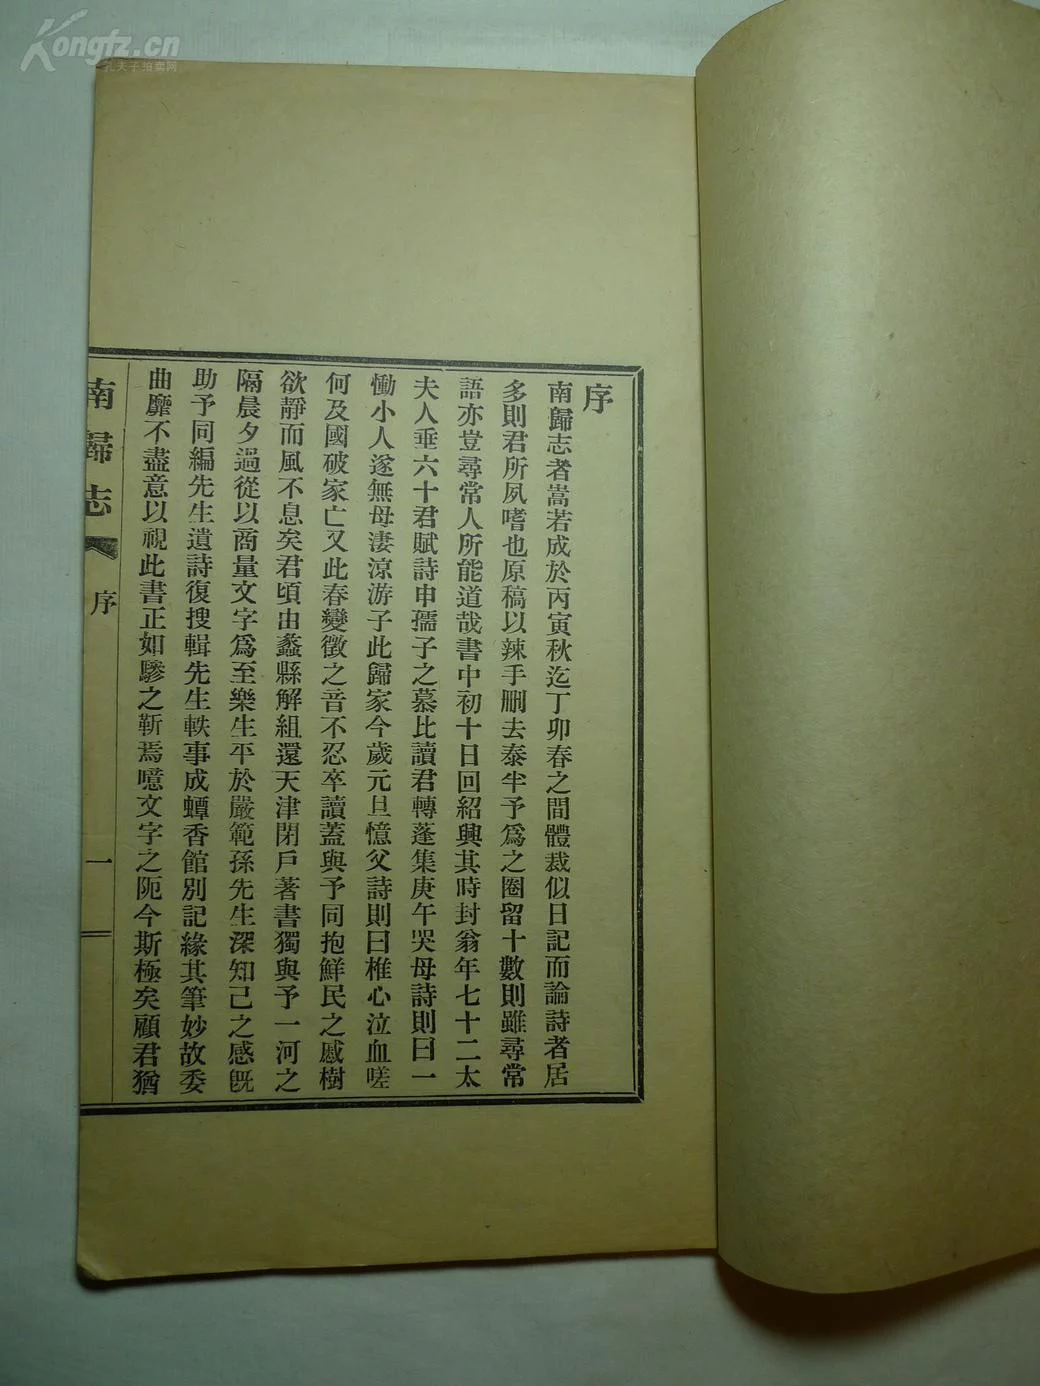 Kongfz.cn
孔夫子拍卖网
序
南歸志者嵩若成於丙寅秋迄丁卯春之間體裁似日記而論詩者居
多則君所夙嗜也原稿以辣手删去泰半予爲之圈留十數則雖尋常
語亦豈尋常人所能道哉書中初十日回紹興其時封翁年七十二太
夫人垂六十君賦詩申孺子之慕比讀君轉蓬集庚午哭母詩則曰一
慟小人遂無母淒涼游子此歸家今歲元旦憶父詩則曰椎心泣血嗟
何及國破家亡又此春變徵之音不忍卒讀蓋與予同抱鮮民之慼樹
欲靜而風不息矣君頃由蠡縣解組還天津閉戶著書獨與予一河之
隔晨夕過從以商量文字爲至樂生平於嚴範孫先生深知己之感旣
助予同編先生遺詩復搜輯先生軼事成蟫香館別記緣其筆妙故委
曲靡不盡意以視此書正如驂之靳焉噫文字之阨今斯極矣顧君猶
南歸志
序
一